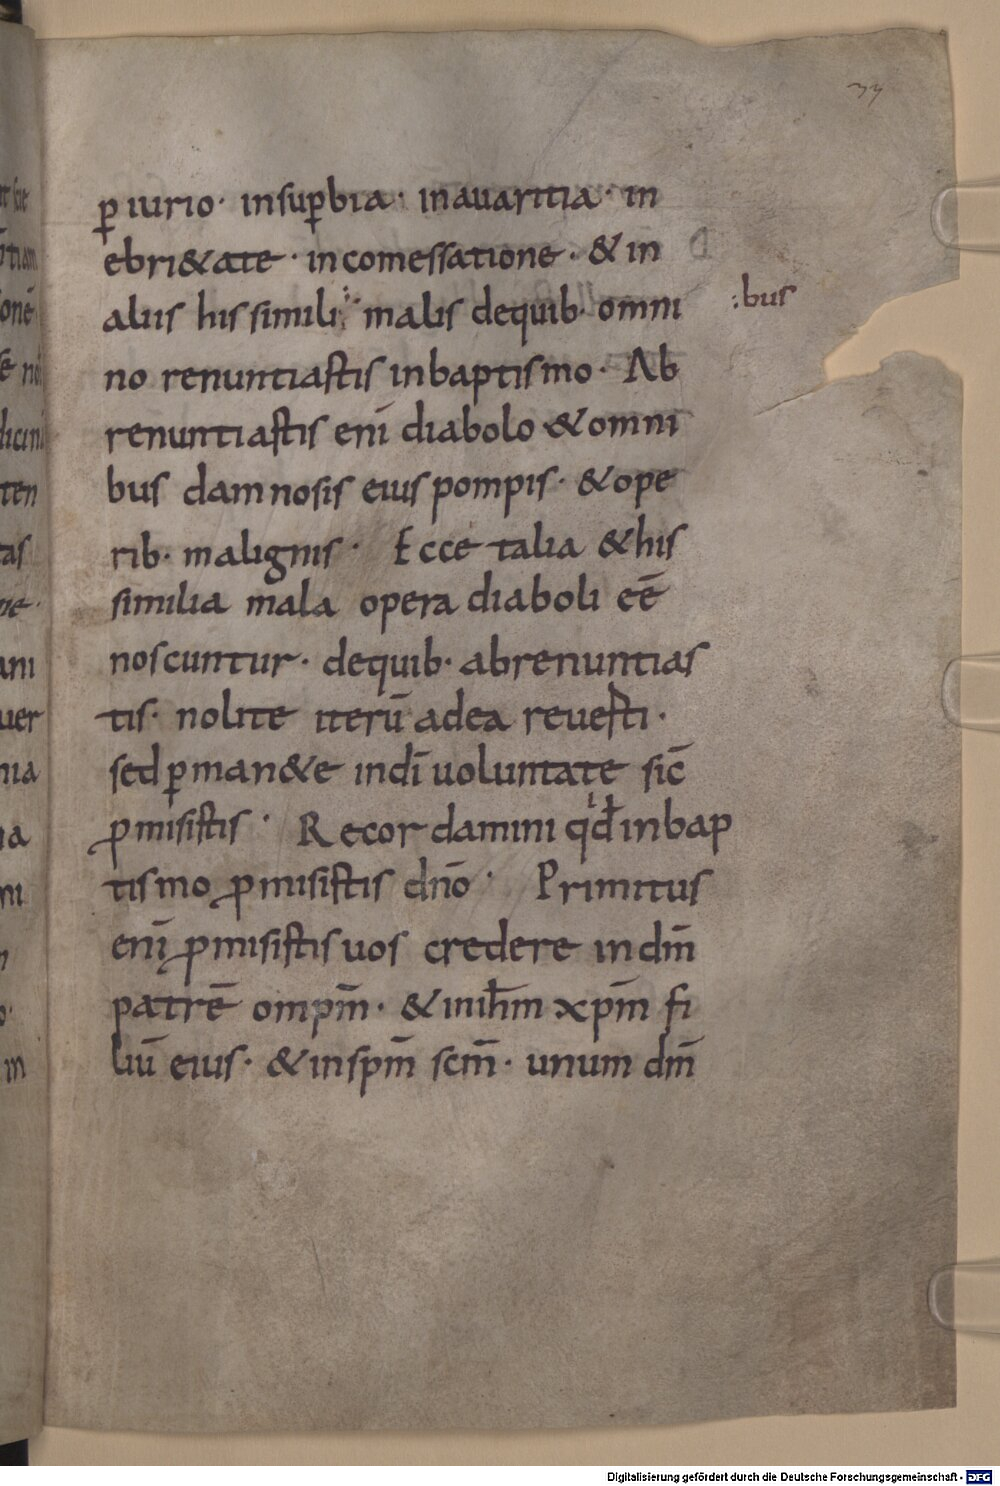 ꝑiurio· insuꝑbia· inauaritia· in
ebri&ate· incomessatione· & in
aliis his simili malis dequib· omni :bus
no renuntiastis inbaptismo· Ab
renuntiastis enī diabolo & omni
bus damnosis eius pompis· & ope
rib· malignis· Ecce talia & his
similia mala opera diaboli eē
noscuntur· dequib· abrenuntias
tis· nolite iterū adea reuesti·
sed ꝑman&e indī uoluntate sic̄
ꝓmisistis· Recordamini qd̄ inbap
tismo ꝓmisistis dn̄o· Primitus
enī ꝓmisistis uos credere indm̄
patrē omp̄m· & inih̄m xp̄m fi
liū eius· & insp̄m sc̄m· unum dm̄
Digitalisierung gefördert durch die Deutsche Forschungsgemeinschaft - DFG